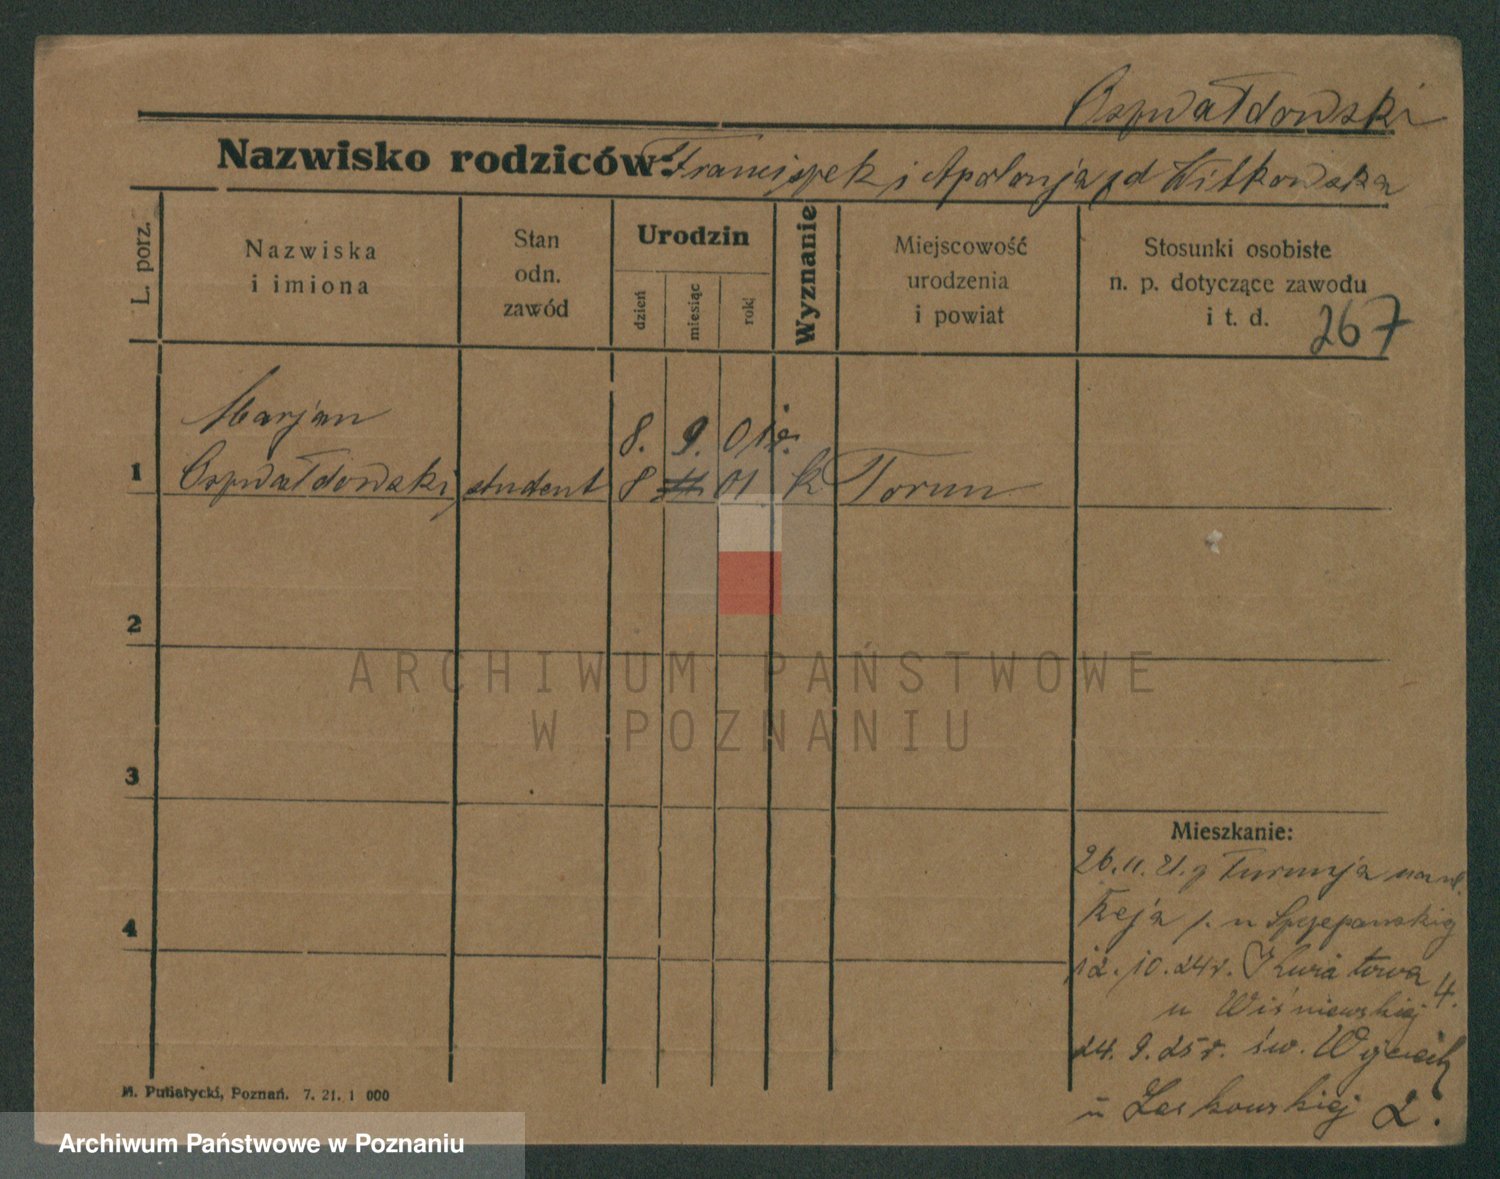 Ospwałdowski
Nazwisko rodziców: Franciszek i Apolonja zd Witkowska
L. porz.
Nazwiska
i imiona
Stan
odn.
zawód
Urodzin
dzień
miesiąc
rok
Wyznanie
Miejscowość
urodzenia
i powiat
Stosunki osobiste
n. p. dotyczące zawodu
i t. d.
267
Marjan
8. 9. 01 r.
1 Ospwałdowski student 8 01 k Torun
2
3
4
Mieszkanie:
26.11.21. z Torunja
p. u Szczepanskiej
12.10.24r. 4.
u Wiśniewskiej
24.9.25r. św. Wojciech
u Laskowskiej 2.
M. Putiatycki, Poznań. 7. 21. 1 000
ARCHIWUM PAŃSTWOWE
W POZNANIU
Archiwum Państwowe w Poznaniu